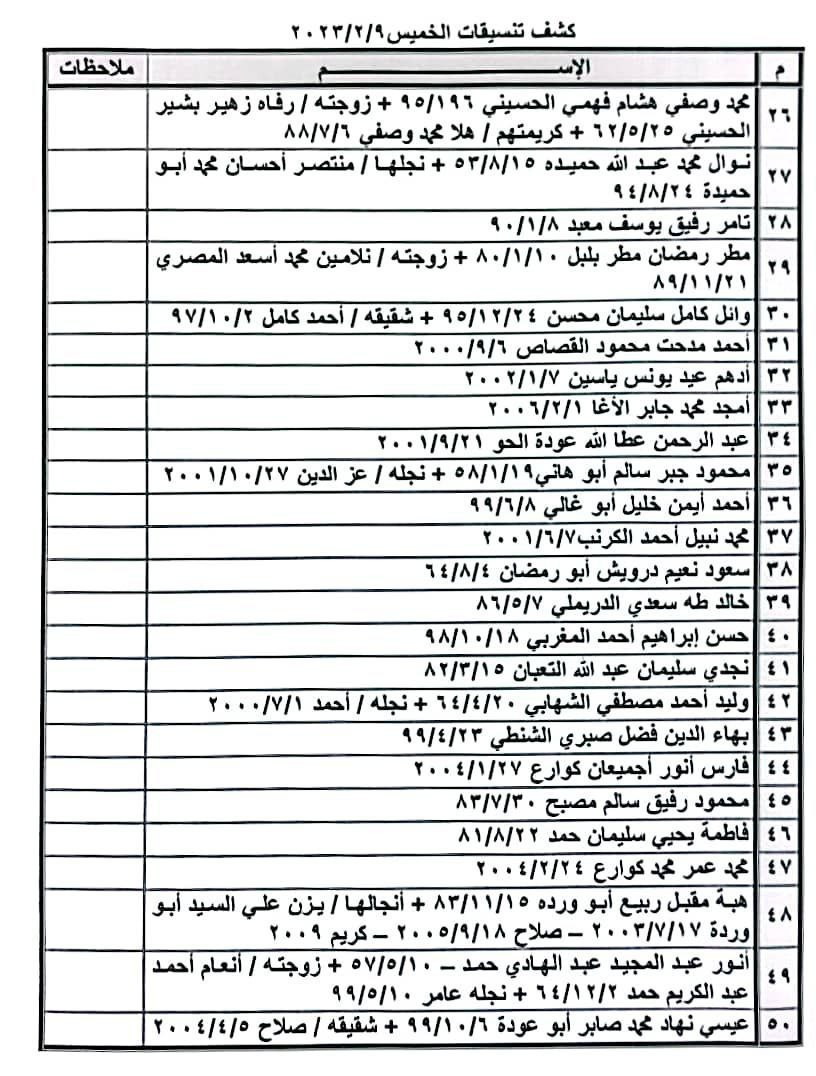 كشف تنسيقات الخميس ٢٠٢٣/٢/٩
م الإســـــــــــــــم ملاحظات
٢٦ محمد وصفي هشام فهمي الحسيني ٩٥/١٩٦ + زوجته / رفاه زهير بشير
الحسيني ٦٢/٥/٢٥ + كريمتهم / هلا محمد وصفي ٨٨/٧/٦
٢٧ نوال محمد عبد الله حميده ٥٣/٨/١٥ + نجلها / منتصر أحسان محمد أبو
حميدة ٩٤/٨/٢٤
٢٨ تامر رفيق يوسف معبد ٩٠/١/٨
٢٩ مطر رمضان مطر بلبل ٨٠/١/١٠ + زوجته / نلامين محمد أسعد المصري
٨٩/١١/٢١
٣٠ وائل كامل سليمان محسن ٩٥/١٢/٢٤ + شقيقه / أحمد كامل ٩٧/١٠/٢
٣١ أحمد مدحت محمود القصاص ٢٠٠٠/٩/٦
٣٢ أدهم عيد يونس ياسين ٢٠٠٢/١/٧
٣٣ أمجد محمد جابر الأغا ٢٠٠٦/٢/١
٣٤ عبد الرحمن عطا الله عودة الحو ٢٠٠١/٩/٢١
٣٥ محمود جبر سالم أبو هاني٥٨/١/١٩ + نجله / عز الدين ٢٠٠١/١٠/٢٧
٣٦ أحمد أيمن خليل أبو غالي ٩٩/٦/٨
٣٧ محمد نبيل أحمد الكرنب٢٠٠١/٦/٧
٣٨ سعود نعيم درويش أبو رمضان ٦٤/٨/٤
٣٩ خالد طه سعدي الدريملي ٨٦/٥/٧
٤٠ حسن إبراهيم أحمد المغربي ٩٨/١٠/١٨
٤١ نجدي سليمان عبد الله التعبان ٨٢/٣/١٥
٤٢ وليد أحمد مصطفي الشهابي ٦٤/٤/٢٠ + نجله / أحمد ٢٠٠٠/٧/١
٤٣ بهاء الدين فضل صبري الشنطي ٩٩/٤/٢٣
٤٤ فارس أنور أجميعان كوارع ٢٠٠٤/١/٢٧
٤٥ محمود رفيق سالم مصبح ٨٣/٧/٣٠
٤٦ فاطمة يحيي سليمان حمد ٨١/٨/٢٢
٤٧ محمد عمر محمد كوارع ٢٠٠٤/٢/٢٤
٤٨ هبة مقبل ربيع أبو ورده ٨٣/١١/١٥ + أنجالها / يزن علي السيد أبو
وردة ٢٠٠٣/٧/١٧ – صلاح ٢٠٠٥/٩/١٨ – كريم ٢٠٠٩
٤٩ أنور عبد المجيد عبد الهادي حمد – ٥٧/٥/١٠ + زوجته / أنعام أحمد
عبد الكريم حمد ٦٤/١٢/٢ + نجله عامر ٩٩/٥/١٠
٥٠ عيسي نهاد محمد صابر أبو عودة ٩٩/١٠/٦ + شقيقه / صلاح ٢٠٠٤/٤/٥